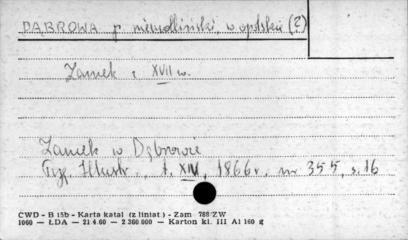 DĄBROWA p. niemodliński, w. opolskie (?)
Zamek z XVII w.
Zamek w Dąbrowie
Tyg. Illustr., t. XIV, 1866 r. nr 355, s. 16
CWD - B 15b - Karta katal (z liniat) - Zam 788 ZW
1060 — ŁDA — 21 4.60 — 2 360.000 — Karton kl. III A1 160 g